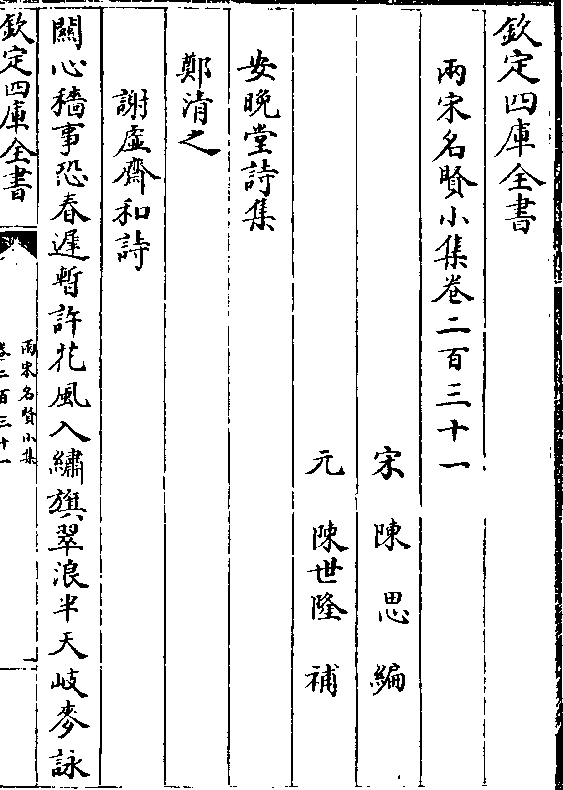 欽定四庫全書
兩宋名賢小集卷二百三十一
宋 陳思 編
元 陳世隆 補
安晚堂詩集
鄭清之
謝虛齊和詩
關心穡事恐春遲暫許花風入繡旗翠浪半天岐麥詠
欽定四庫全書
兩宋名賢小集
卷二百三十一
一